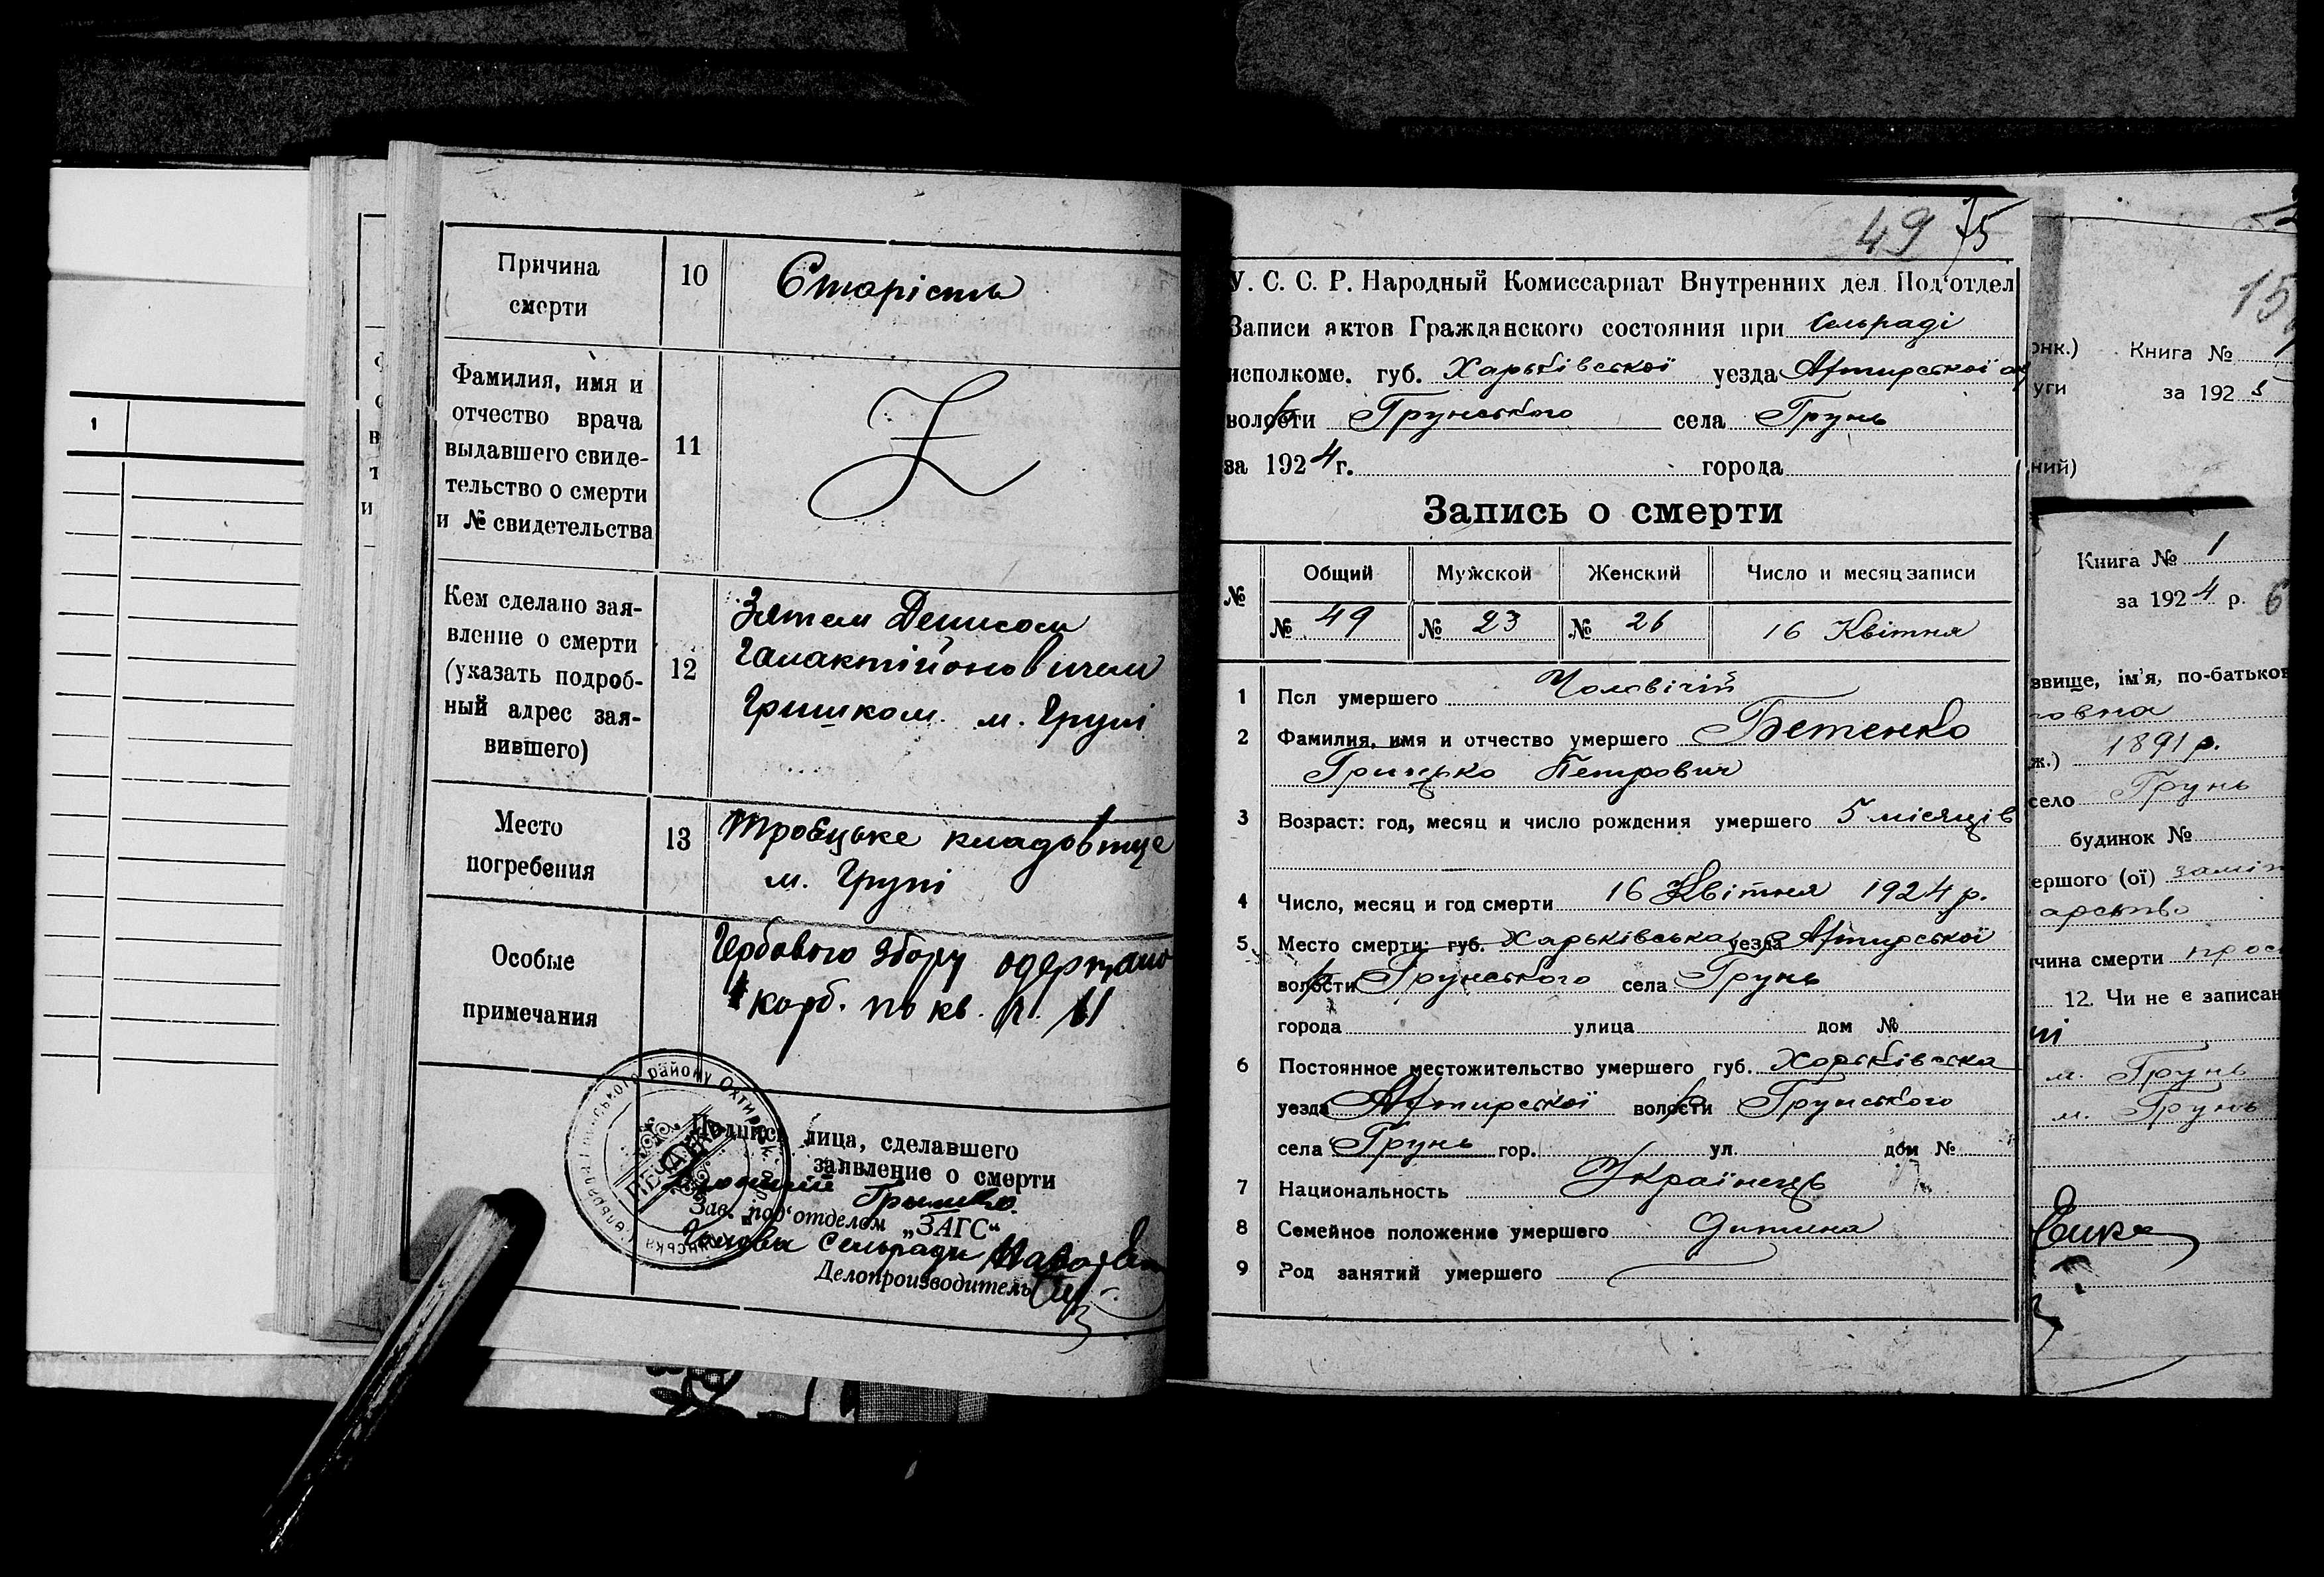 1
Причина
смерти
10
Старість
Фамилия, имя и
отчество врача
выдавшего свиде-
тельство о смерти
и № свидетельства
11
Кем сделано зая-
вление о смерти
(указать подроб-
ный адрес зая-
вившего)
12
Зятем Денисом
Галактійоновичем
Гришком м. Груні
Место
погребения
13
Троєцьке кладовище
м. Груні
Особые
примечания
Гербового збору одержано
4 карб. по кв. n. 11
Подпись лица, сделавшего
заявление о смерти
Гришко
Зав. под‘отделом „ЗАГС“
Голова Сельради
Делопроизводитель
49 75
У. С. С. Р. Народный Комиссариат Внутренних дел Под‘отдел
Записи актов Гражданского состояния при Сельраді
исполкоме. губ. Харьківської уезда Ахтирської ок
волости Грунського села Грунь
за 1924 г. города
Запись о смерти
№ Общий Мужской Женский Число и месяц записи
№ 49 № 23 № 26 16 Квітня
1 Пол умершего Чоловічій
2 Фамилия, имя и отчество умершего Бетенко
Грицько Петрович
3 Возраст: год, месяц и число рождения умершего 5 місяців
4 Число, месяц и год смерти 16 Квітня 1924 р.
5 Место смерти: губ. Харьківська уезда Ахтирської
волости Грунського села Грунь
города улица дом №
6 Постоянное местожительство умершего губ. Харьківська
уезда Ахтирської волости Грунського
села Грунь гор. ул. дом №
7 Национальность Українець
8 Семейное положение умершего Дитина
9 Род занятий умершего
Книга №
за 1925
Книга № 1
за 1924 р. 6
звище, ім'я, по-батьков
овна
ж.) 1891 р.
село Грунь
будинок №
ершого (ої) заміж
арство
чина смерти прос
12. Чи не є записан
м. Грунь
м. Грунь